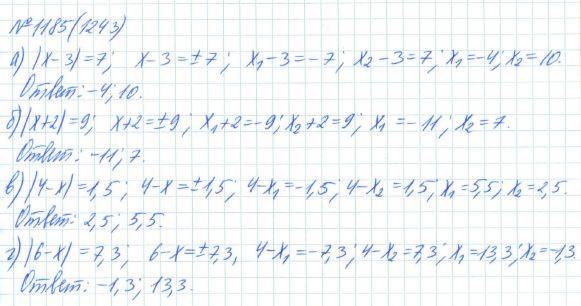 № 1185 (1243)
а) |x-3|=7; x-3=±7; x₁-3=-7; x₂-3=7; x₁=-4; x₂=10.
Ответ: -4; 10.
б) |x+2|=9; x+2=±9; x₁+2=-9; x₂+2=9; x₁=-11; x₂=7.
Ответ: -11; 7.
в) |4-x|=1,5; 4-x=±1,5; 4-x₁=-1,5; 4-x₂=1,5; x₁=5,5; x₂=2,5.
Ответ: 2,5; 5,5.
г) |6-x|=7,3; 6-x=±7,3, 4-x₁=-7,3; 4-x₂=7,3; x₁=13,3; x₂=-1,3.
Ответ: -1,3; 13,3.